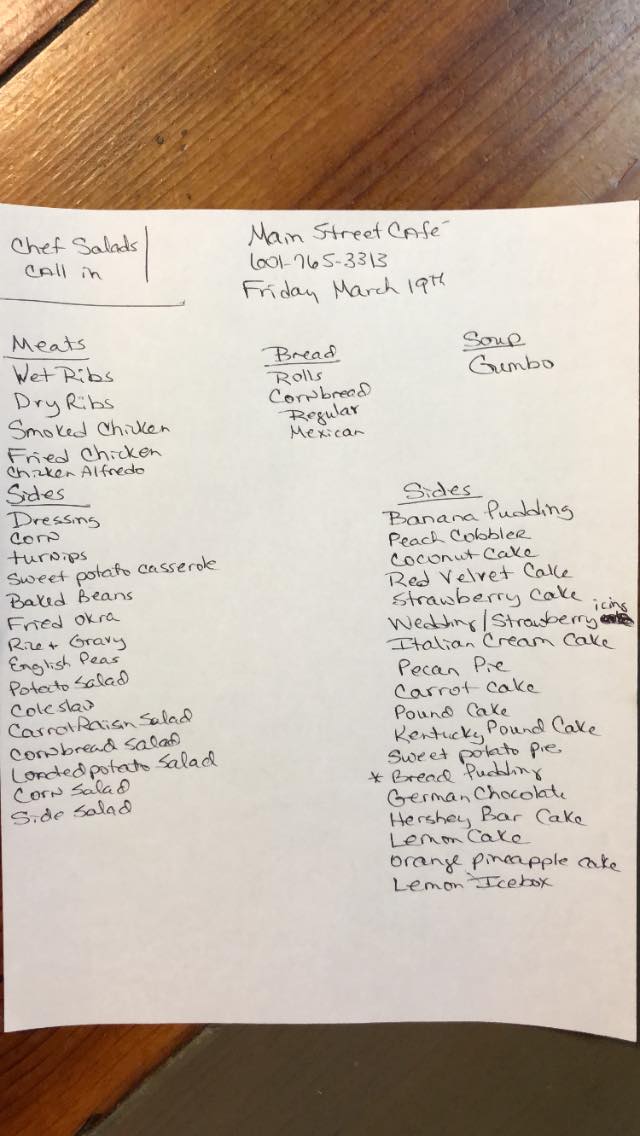 Chef Salads
Call in
Main Street Café
601-765-3313
Friday March 19th
Meats
Wet Ribs
Dry Ribs
Smoked Chicken
Fried Chicken
Chicken Alfredo
Bread
Rolls
Cornbread
Regular
Mexican
Soup
Gumbo
Sides
Dressing
Corn
turnips
Sweet potato casserole
Baked Beans
Fried Okra
Rice + Gravy
English Peas
Potato Salad
Coleslaw
Carrot Raisin Salad
Cornbread Salad
Loaded potato Salad
Corn Salad
Side Salad
Sides
Banana Pudding
Peach Cobbler
Coconut Cake
Red Velvet Cake
Strawberry Cake
Wedding/Strawberry icing
Italian Cream Cake
Pecan Pie
Carrot Cake
Pound Cake
Kentucky Pound Cake
Sweet potato pie
* Bread Pudding
German Chocolate
Hershey Bar Cake
Lemon Cake
Orange pineapple cake
Lemon Icebox